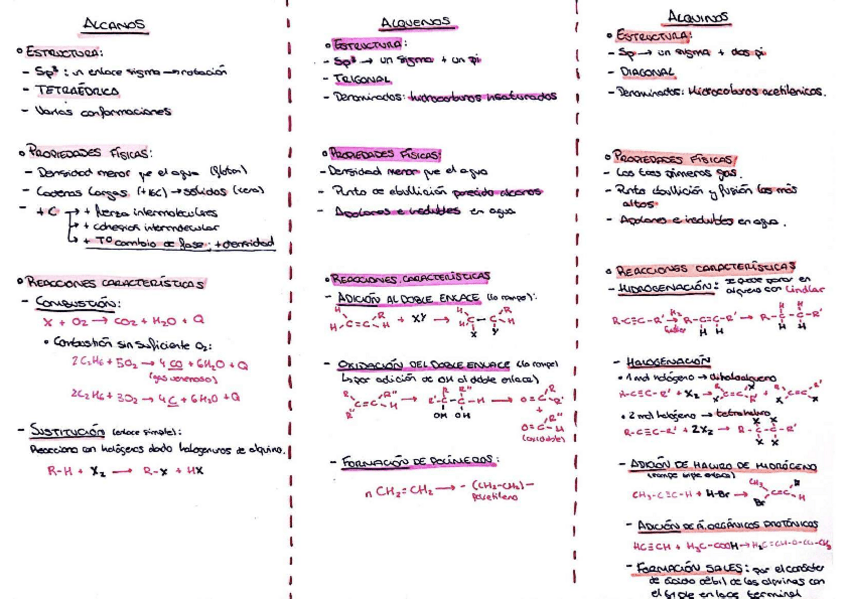 ALCANOS
° ESTRUCTURA:
- Sp³: un enlace sigma → rotación
- TETRAÉDRICA
- Varias conformaciones
° PROPIEDADES FÍSICAS:
- Densidad menor que el agua (flotan)
- Cadenas largas (+16C) → sólidos (cera)
- +C → + fuerza intermoleculares
↳ + cohesión intermolecular
↳ + Tº cambio de fase; + densidad
° REACCIONES CARACTERÍSTICAS
- COMBUSTIÓN:
X + O2 → CO2 + H2O + Q
• Combustión sin suficiente O2:
2C2H6 + 5O2 → 4CO + 6H2O + Q
(gas venenoso)
2C2H6 + 3O2 → 4C + 6H2O + Q
- SUSTITUCIÓN (enlace simple):
Reacciona con halógenos dando halogenuros de alquino.
R-H + X2 → R-X + HX
ALQUENOS
° ESTRUCTURA:
- Sp² → un sigma + un pi
- TRIGONAL
- Denominados: hidrocarburos insaturados
° PROPIEDADES FÍSICAS:
- Densidad menor que el agua
- Punto de ebullición parecido alcanos
- Apolares e insolubles en agua
° REACCIONES CARACTERÍSTICAS
- ADICIÓN AL DOBLE ENLACE (lo rompe):
+ XY →
- OXIDACIÓN DEL DOBLE ENLACE (lo rompe)
↳ por adición de OH al doble enlace)
- FORMACIÓN DE POLÍMEROS:
n CH2=CH2 → -(CH2-CH2)-
ALQUINOS
° ESTRUCTURA:
- Sp → un sigma + dos pi
- DIAGONAL
- Denominados: Hidrocarburos acetilénicos.
° PROPIEDADES FÍSICAS:
- Los tres primeros gas.
- Punto ebullición y fusión los más
altos.
- Apolares e insolubles en agua.
° REACCIONES CARACTERÍSTICAS
- HIDROGENACIÓN: en
alqueno con Lindlar
- HALOGENACIÓN
• 1 mol halógeno → dihaloalqueno
• 2 mol halógeno →
R-C≡C-R' + 2X2 →
- ADICIÓN DE HALURO DE HIDRÓGENO
(rompe triple enlace)
CH3-C≡C-H + H-Br →
- ADICIÓN DE ORGÁNICOS PROTÓNICOS
HC≡CH + H3C-COOH →
- FORMACIÓN SALES: por el carácter
de ácido débil de los alquinos con
el triple enlace terminal